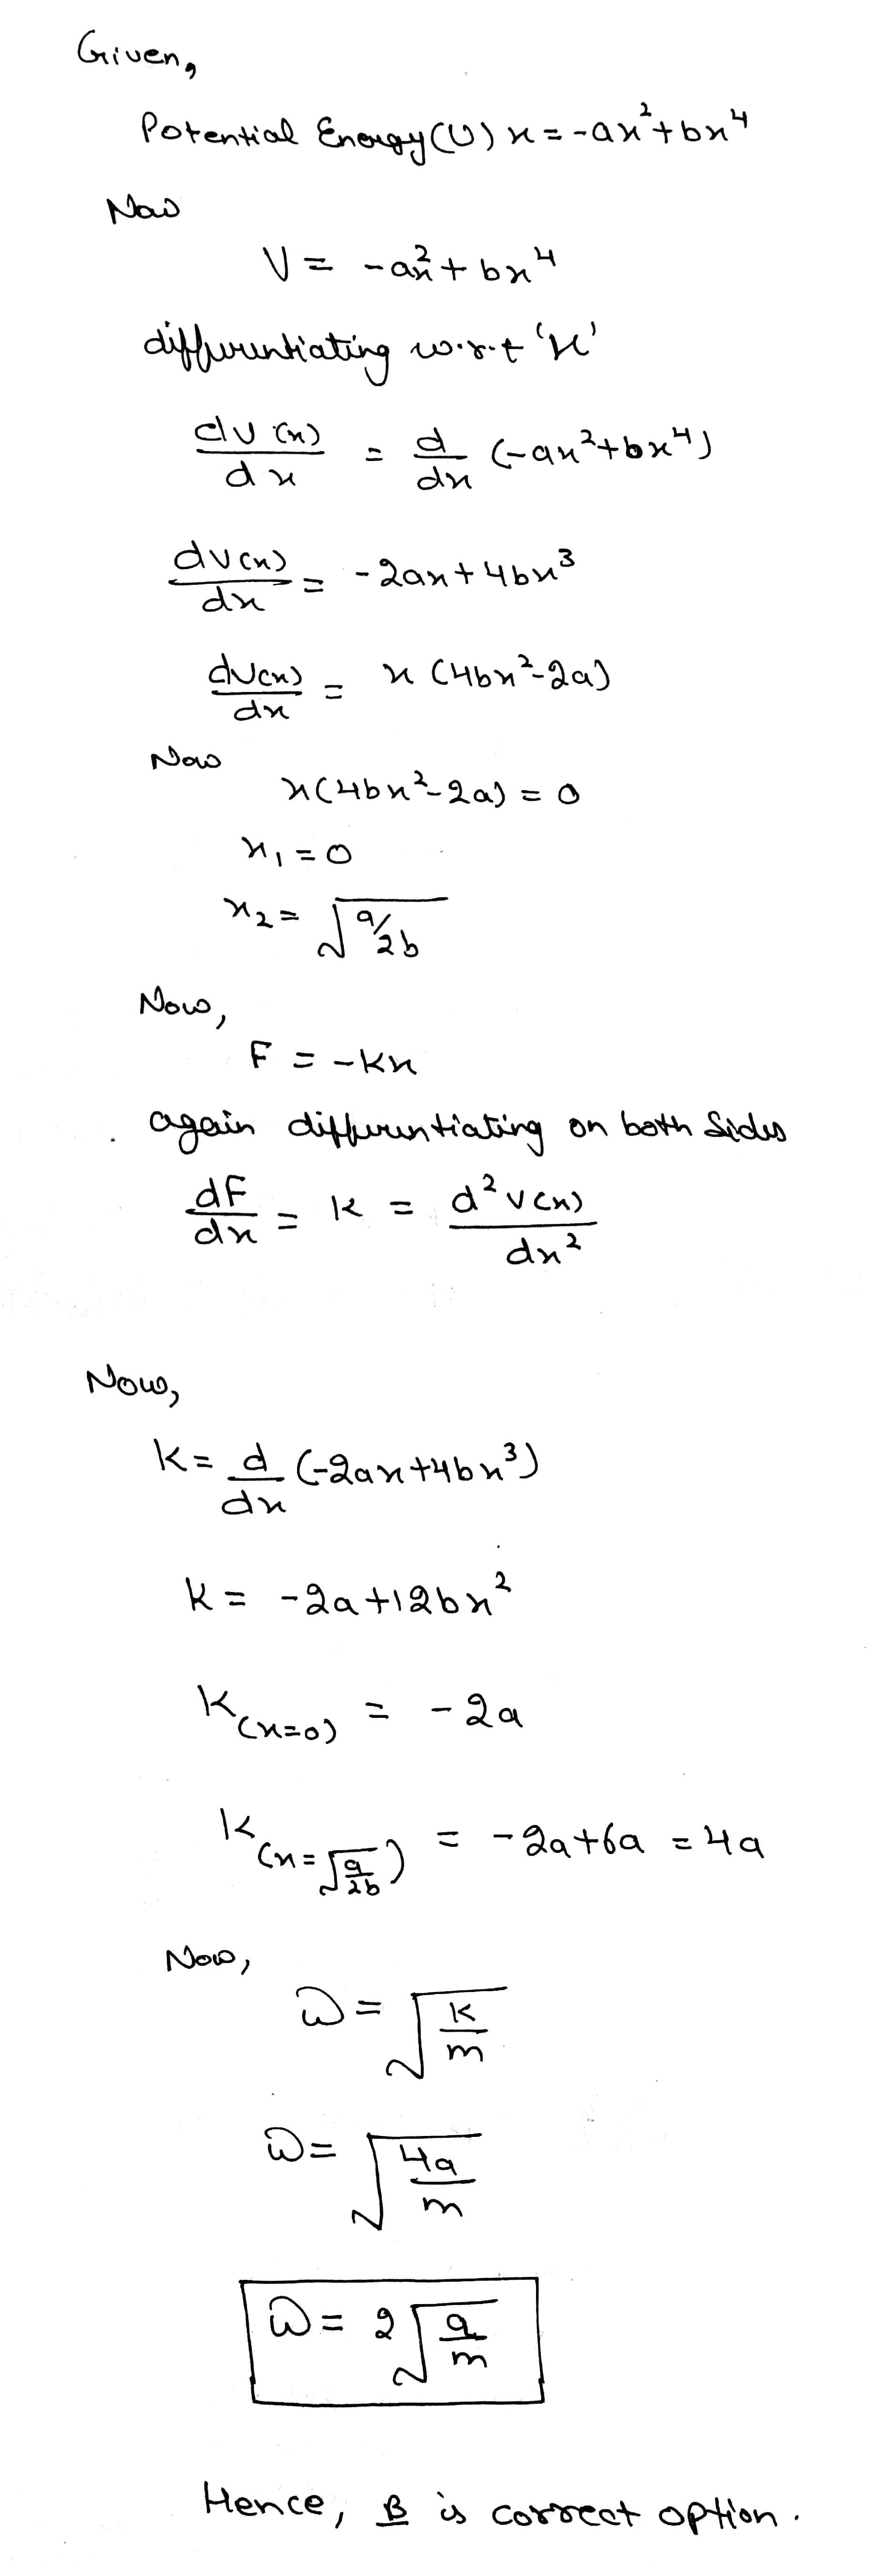 Given,
Potential Energy (U) x = -ax² + bx⁴
Now
V = -ax² + bx⁴
differentiating w.r.t 'x'
dv(x)/dx = d/dx (-ax² + bx⁴)
dv(x)/dx = -2ax + 4bx³
dv(x)/dx = x (4bx² - 2a)
Now
x(4bx² - 2a) = 0
x₁ = 0
x₂ = √(a/2b)
Now,
F = -kx
again differentiating on both sides
dF/dx = k = d²v(x)/dx²
Now,
k = d/dx (-2ax + 4bx³)
k = -2a + 12bx²
k(x=0) = -2a
k(x=√(a/2b)) = -2a + 6a = 4a
Now,
ω = √(k/m)
ω = √(4a/m)
ω = 2√(a/m)
Hence, B is correct option.